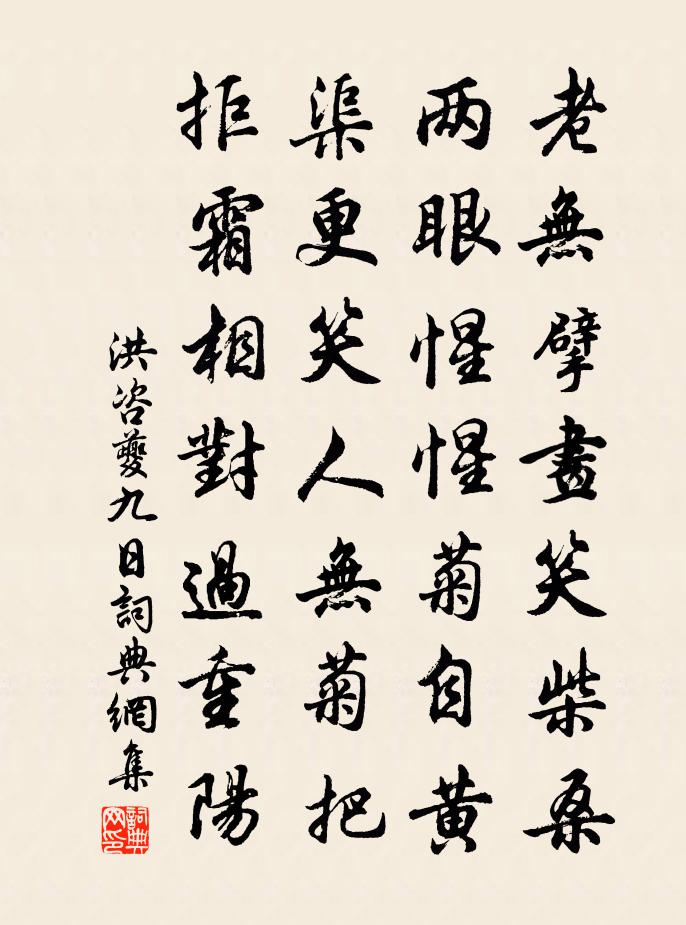 老無擘畫笑柴桑
两眼惺惺菊自黄
渠更笑人無菊把
拒霜相對過重陽
洪咨夔九日詞典網集
詞典网印